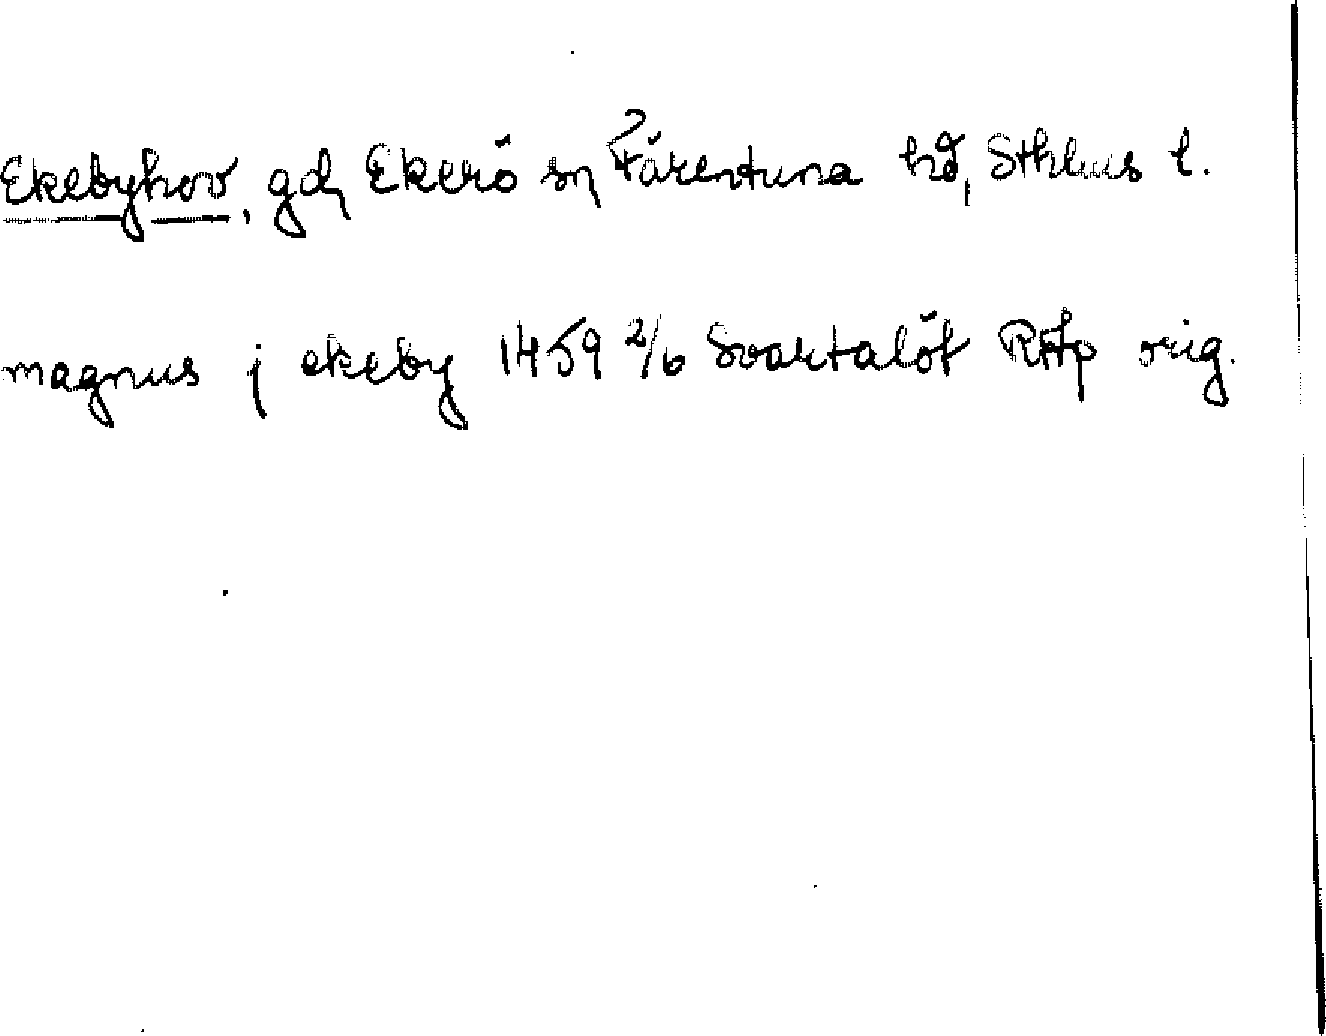 Ekebyhov, gd, Ekerö sn, Färentuna hd, Sthlms l.
magnus j ekeby 1459 2/6 Svartslöt RAp orig.